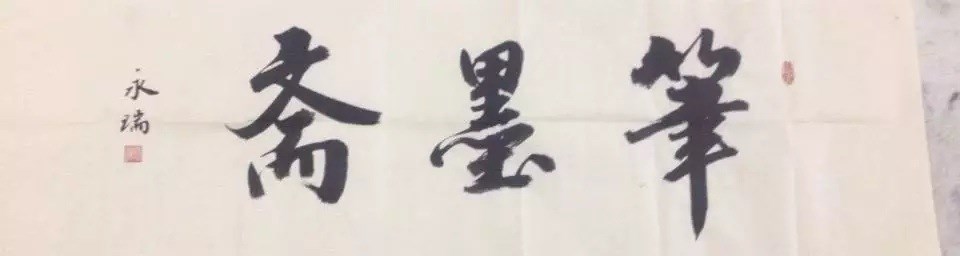 筆墨斋
永瑞